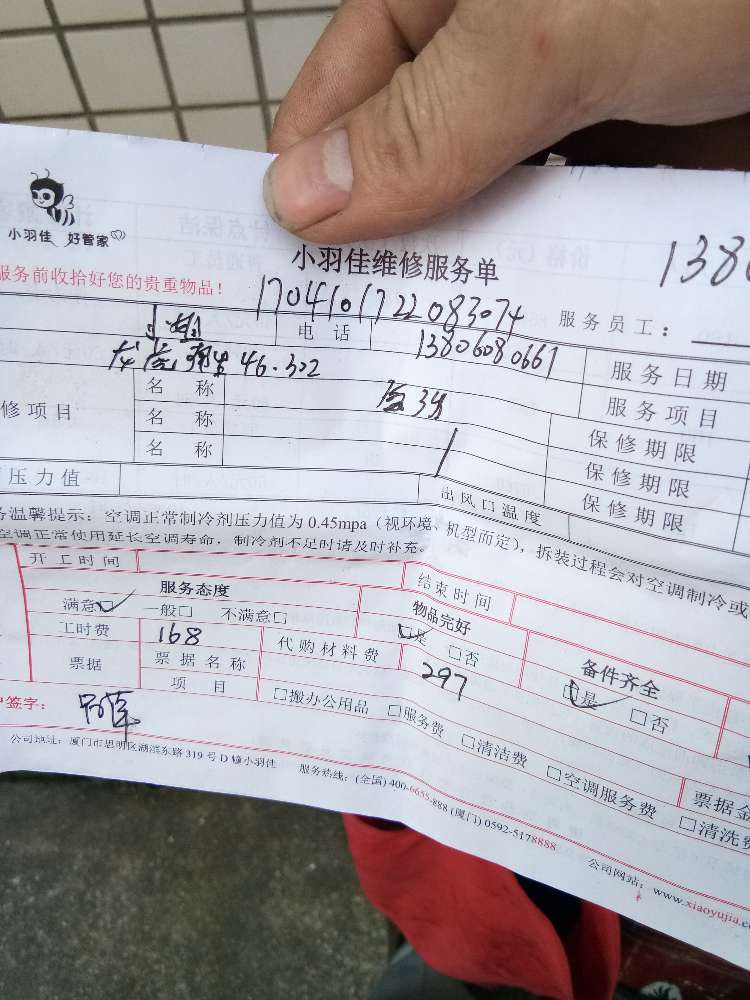 小羽佳 好管家
小羽佳维修服务单
138
服务前收拾好您的贵重物品！
1704101722083074
服务员工：
电 话
13806080667
服务日期
46.302
修项目
名 称
服务项目
名 称
保修期限
名 称
保修期限
压力值
出风口温度
保修期限
务温馨提示：空调正常制冷剂压力值为 0.45mpa（视环境、机型而定），拆装过程会对空调制冷或
空调正常使用延长空调寿命，制冷剂不足时请及时补充。
开工时间
结束时间
服务态度
物品完好
备件齐全
满意□ 一般□ 不满意□
□是 □否
□是 □否
工时费
168
代购材料费
297
票据
票据名称
项 目
□搬办公用品 □服务费 □清洁费 □空调服务费 □清洗费
票据金
户签字：
公司地址：厦门市思明区湖滨东路 319 号 D 幢小羽佳 服务热线：(全国) 400-6655-888 (厦门) 0592-5178888
公司网站：www.xiaoyujia.c